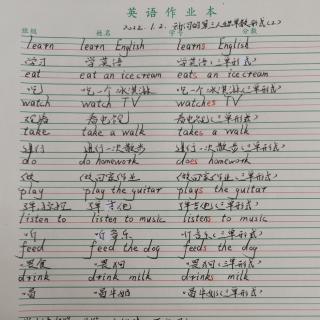 英语作业本
班级 姓名 学号 分数
2022.1.2. 动词的第三人称单数形式(2)
learn learn English learns English
学习 学英语 学英语(三单形式)
eat eat an icecream eats an icecream
吃 吃一个冰淇淋 吃一个冰淇淋(三单形式)
watch watch TV watches TV
观看 看电视 看电视(三单形式)
take take a walk takes a walk
进行 进行一次散步 进行一次散步(三单形式)
do do homework does homework
做 做回家作业 做回家作业(三单形式)
play play the guitar plays the guitar
弹吉他 弹吉他(三单形式)
listen to listen to music listens to music
听 听音乐 听音乐(三单形式)
feed feed the dog feeds the dog
喂食 喂狗 喂狗(三单形式)
drink drink milk drinks milk
喝 喝牛奶 喝牛奶(三单形式)